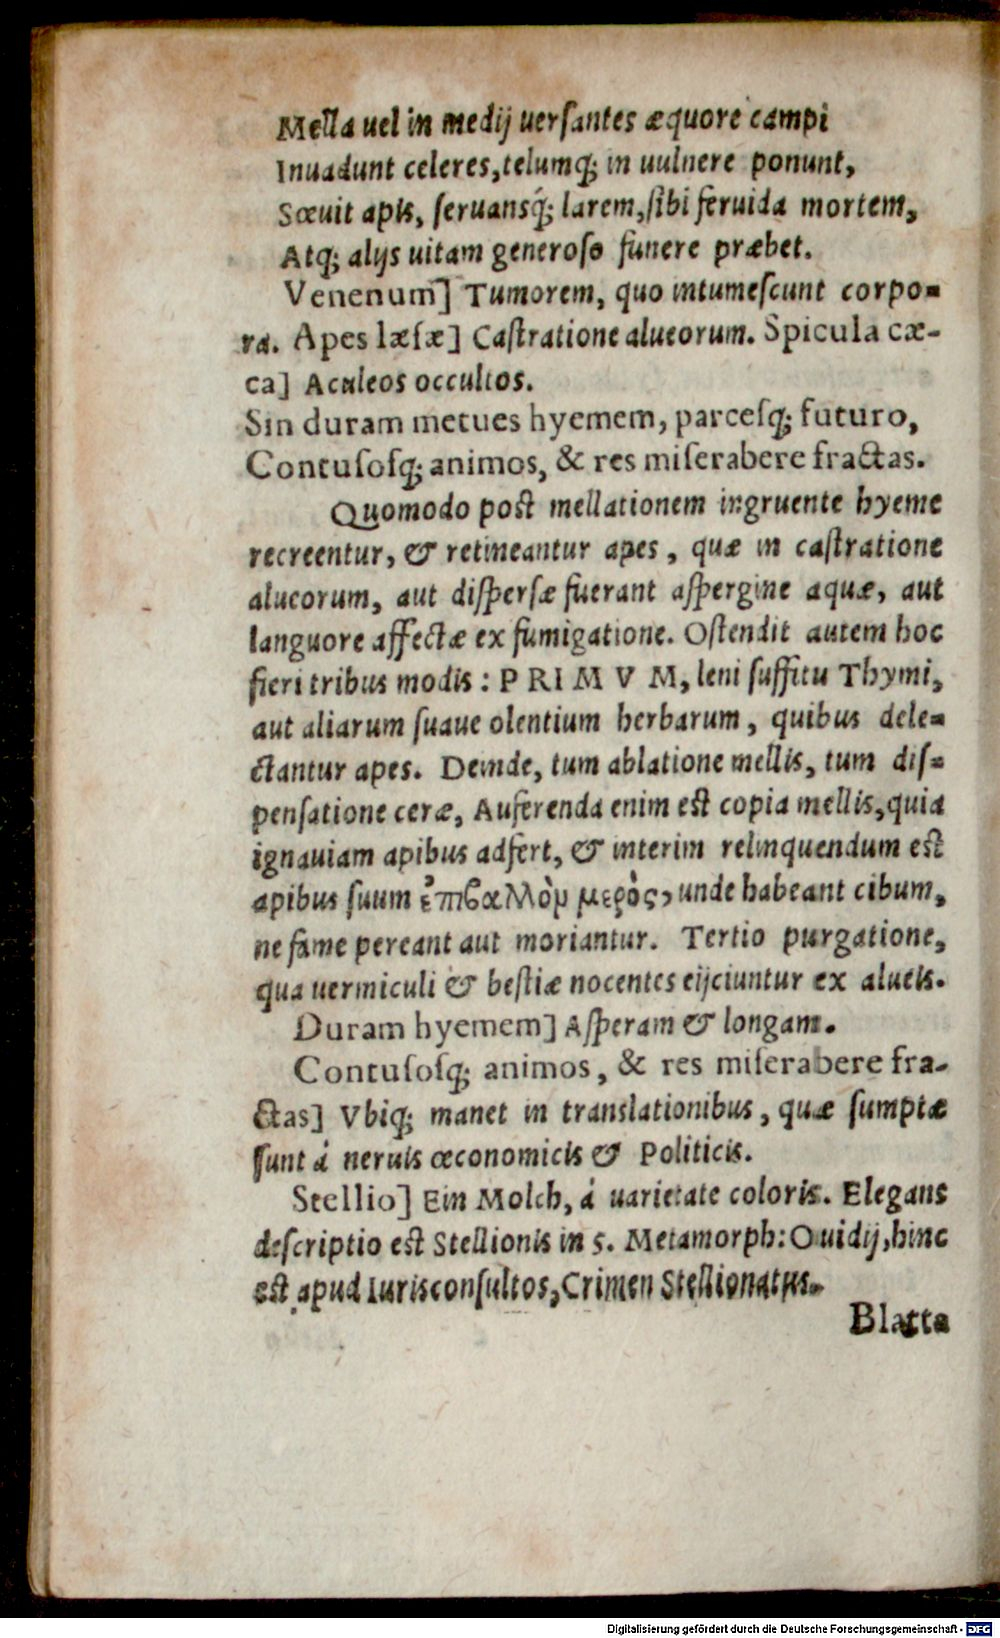 Mella uel in medij uerſantes æquore campi
Inuadunt celeres, telumq́; in uulnere ponunt,
Sæuit apis, ſeruansq́; larem, ſibi feruida mortem,
Atq́; alijs uitam generoſo funere præbet.
Venenum] Tumorem, quo intumeſcunt corpo=
ra. Apes læſæ] Caſtratione alueorum. Spicula cæ-
ca] Aculeos occultos.
Sin duram metues hyemem, parceſq́; futuro,
Contuſoſq́; animos, & res miſerabere fractas.
Quomodo post mellationem ingruente hyeme
recreentur, & retineantur apes, quæ in caſtratione
alueorum, aut diſperſæ fuerant aſpergine aquæ, aut
languore affectæ ex fumigatione. Oſtendit autem hoc
fieri tribus modis: PRIMVM, leni ſuffitu Thymi,
aut aliarum ſuaue olentium herbarum, quibus dele=
ctantur apes. Deinde, tum ablatione mellis, tum diſ=
penſatione ceræ, Auferenda enim est copia mellis, quia
ignauiam apibus adfert, & interim relinquendum est
apibus ſuum ἐπιβαλλὸμ μερὸς, unde habeant cibum,
ne fame pereant aut moriantur. Tertio purgatione,
qua uermiculi & beſtiæ nocentes eijciuntur ex alueis.
Duram hyemem] Aſperam & longam.
Contuſoſq́; animos, & res miſerabere fra-
ctas] Vbiq́; manet in translationibus, quæ ſumptæ
ſunt á neruis œconomicis & Politicis.
Stellio] Ein Molch, á uarietate coloris. Elegans
deſcriptio est Stellionis in 5. Metamorph: Ouidij, hinc
est apud Iurisconſultos, Crimen Stellionatus.
Blatta
Digitalisierung gefördert durch die Deutsche Forschungsgemeinschaft - DFG